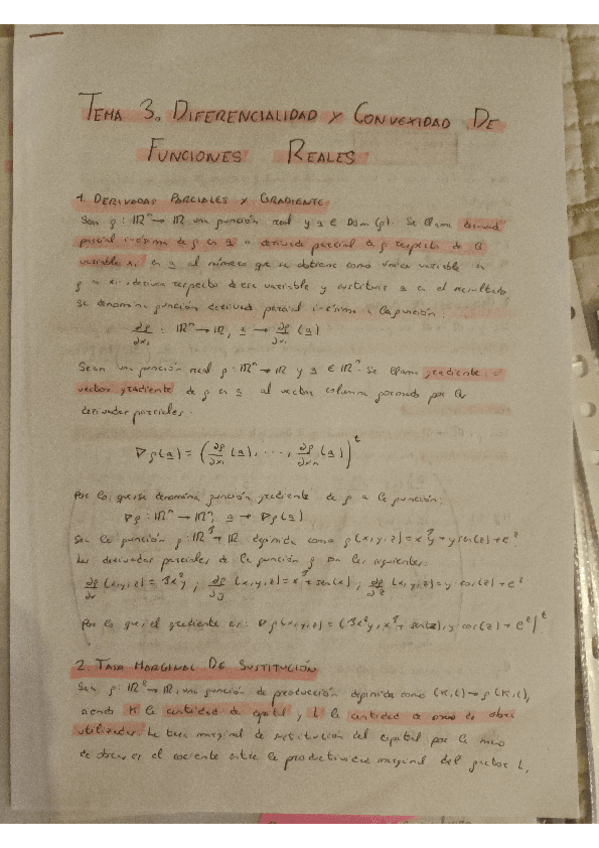 TEMA 3. DIFERENCIALIDAD Y CONVEXIDAD DE
FUNCIONES REALES
1. DERIVADAS PARCIALES Y GRADIENTE
Sean f: ℝⁿ→ℝ una función real y a ∈ Dom(f). Se llama derivada
parcial i-ésima de f en a o derivada parcial de f respecto de la
variable xᵢ en a al número que se obtiene como única variable en
f a xᵢ, deriva respecto de esa variable y sustituir a en el resultado
Se denomina función derivada parcial i-ésima a la función:
∂f/∂xᵢ : ℝⁿ→ℝ, a → ∂f/∂xᵢ (a)
Sean una función real f: ℝⁿ→ℝ y a ∈ ℝⁿ. Se llama gradiente o
vector gradiente de f en a al vector columna formado por las
derivadas parciales.
∇f(a) = (∂f/∂x₁ (a), ..., ∂f/∂xₙ (a))ᵗ
Por lo que se denomina función gradiente de f a la función:
∇f: ℝⁿ→ℝⁿ, a → ∇f(a)
Sea la función f: ℝ³→ℝ definida como f(x,y,z)=x³y+ysen(z)+eᶻ
Las derivadas parciales de la función f son las siguientes:
∂f/∂x (x,y,z)=3x²y ; ∂f/∂y (x,y,z)=x³+sen(z) ; ∂f/∂z (x,y,z)=y·cos(z)+eᶻ
Por lo que, el gradiente es: ∇f(x,y,z)=(3x²y, x³+sen(z), y cos(z)+eᶻ)ᵗ
2. TASA MARGINAL DE SUSTITUCIÓN
Sea f: ℝ²→ℝ, una función de producción definida como (K,L)→f(K,L),
siendo K la cantidad de capital, L la cantidad de mano de obra
utilizadas. La tasa marginal de sustitución del capital por la mano
de obra, es el cociente entre la productividad marginal del factor L,